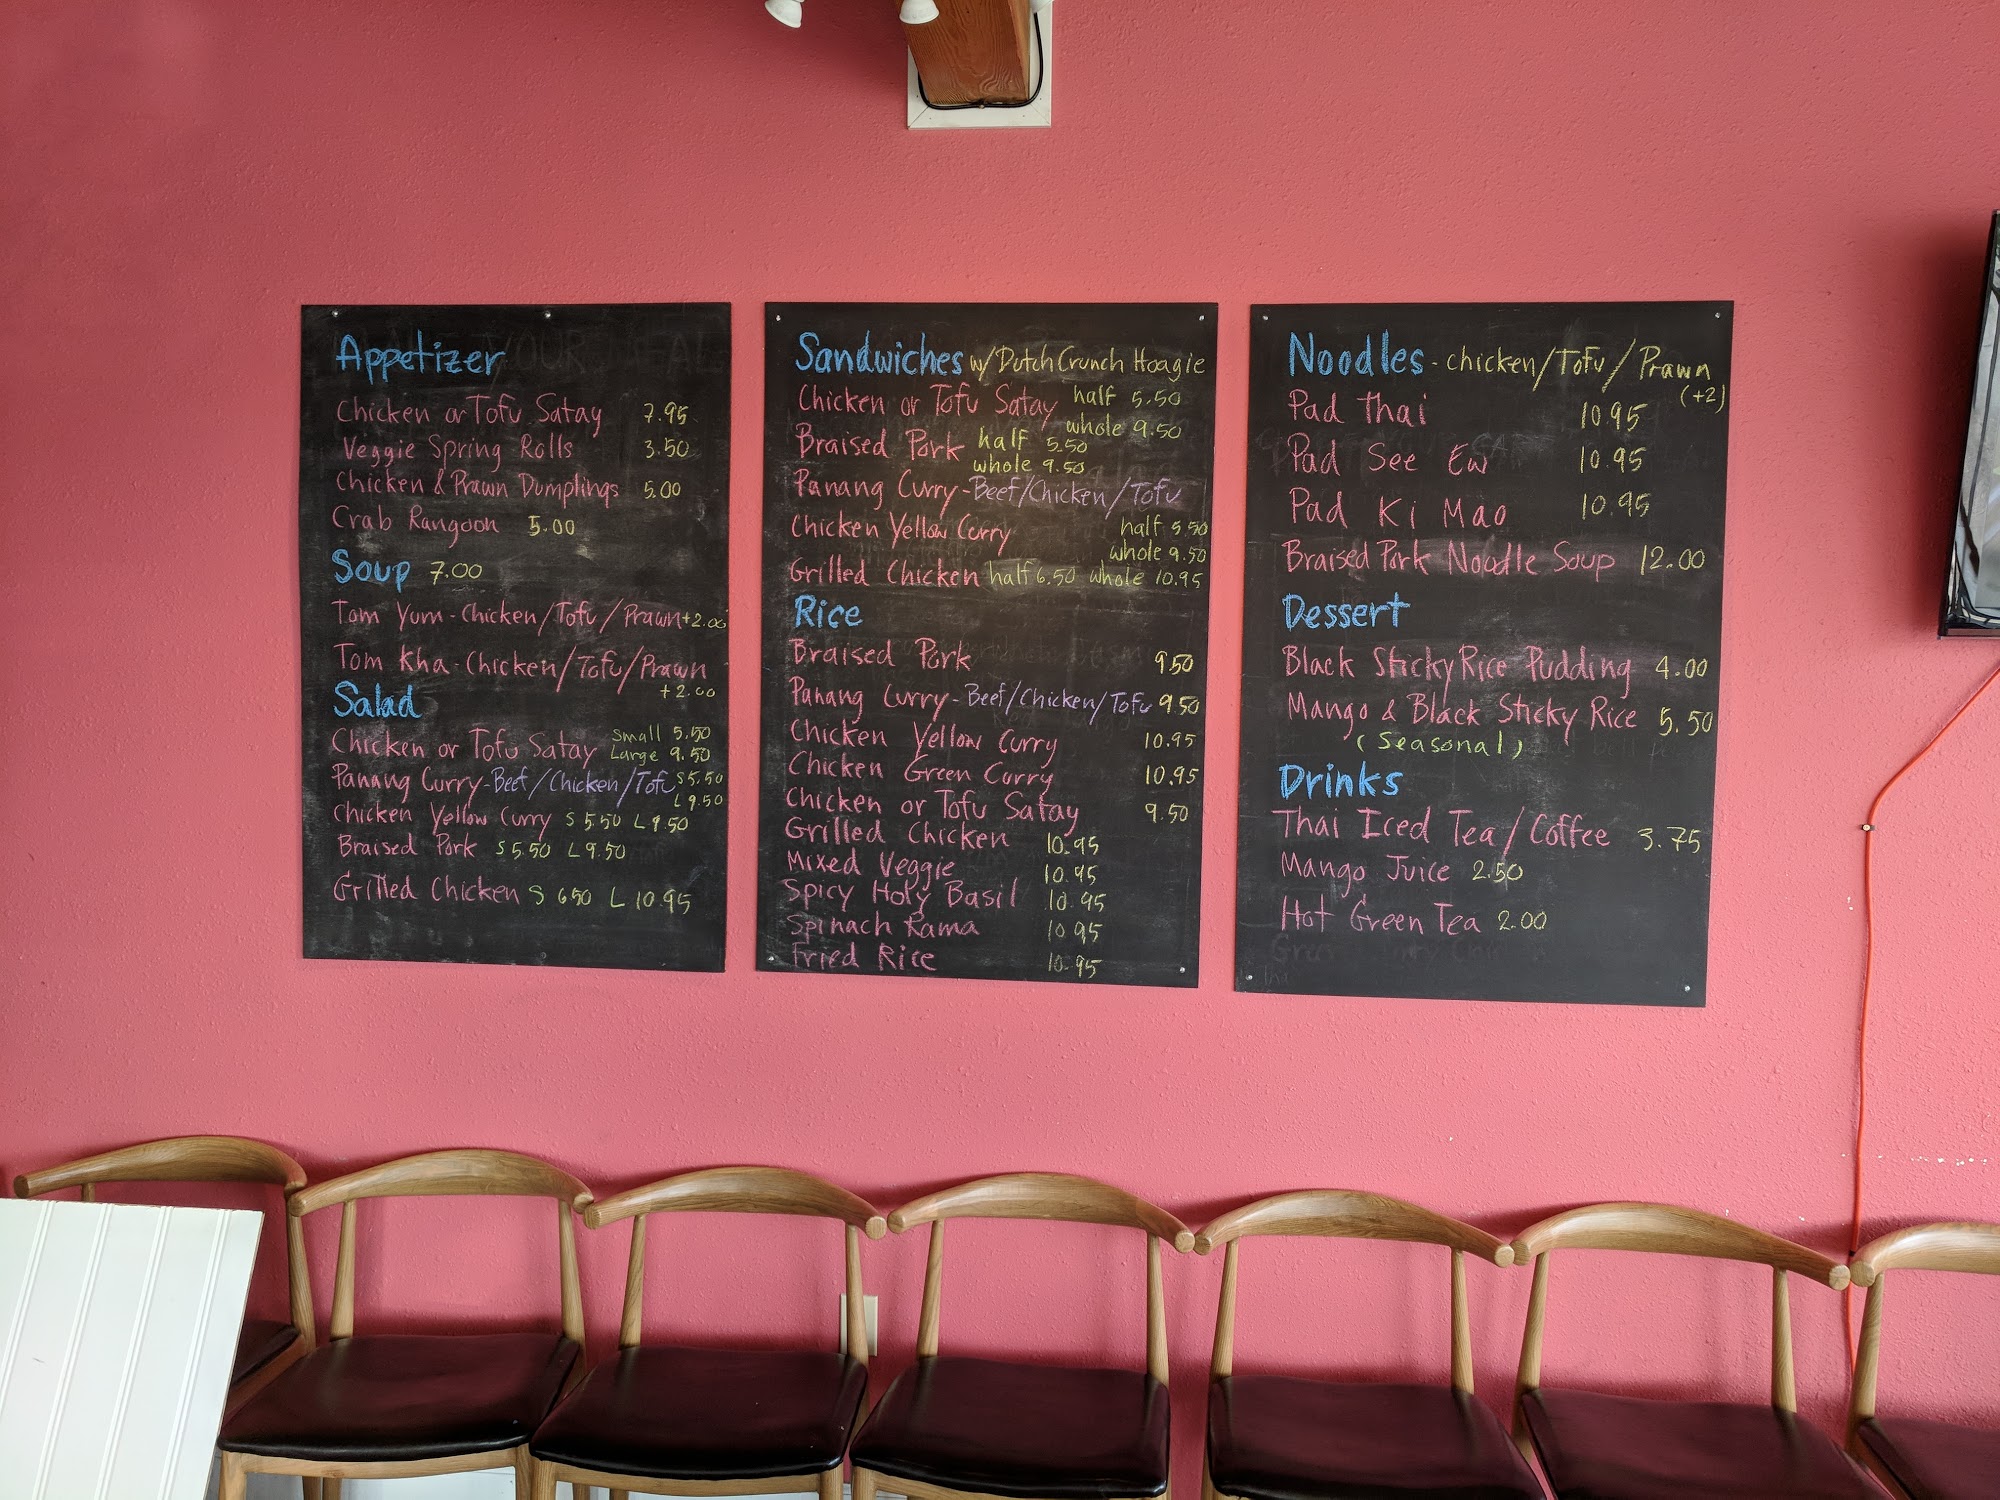 Appetizer
Chicken or Tofu Satay 7.95
Veggie Spring Rolls 3.50
Chicken & Prawn Dumplings 5.00
Crab Rangoon 5.00
Soup 7.00
Tom Yum - Chicken/Tofu/Prawn +2.00
Tom Kha - Chicken/Tofu/Prawn
+2.00
Salad
Chicken or Tofu Satay Small 5.50
Large 9.50
Panang Curry - Beef/Chicken/Tofu S 5.50
L 9.50
Chicken Yellow Curry S 5.50 L 9.50
Braised Pork S 5.50 L 9.50
Grilled Chicken S 6.50 L 10.95
Sandwiches w/ Dutch Crunch Hoagie
Chicken or Tofu Satay half 5.50
whole 9.50
Braised Pork half 5.50
whole 9.50
Panang Curry - Beef/Chicken/Tofu
Chicken Yellow Curry half 5.50
whole 9.50
Grilled Chicken half 6.50 whole 10.95
Rice
Braised Pork 9.50
Panang Curry - Beef/Chicken/Tofu 9.50
Chicken Yellow Curry 10.95
Chicken Green Curry 10.95
Chicken or Tofu Satay 9.50
Grilled Chicken 10.95
Mixed Veggie 10.95
Spicy Holy Basil 10.95
Spinach Rama 10.95
Fried Rice 10.95
Noodles - Chicken/Tofu/Prawn
(+2)
Pad Thai 10.95
Pad See Ew 10.95
Pad Ki Mao 10.95
Braised Pork Noodle Soup 12.00
Dessert
Black Sticky Rice Pudding 4.00
Mango & Black Sticky Rice 5.50
(Seasonal)
Drinks
Thai Iced Tea/Coffee 3.75
Mango Juice 2.50
Hot Green Tea 2.00